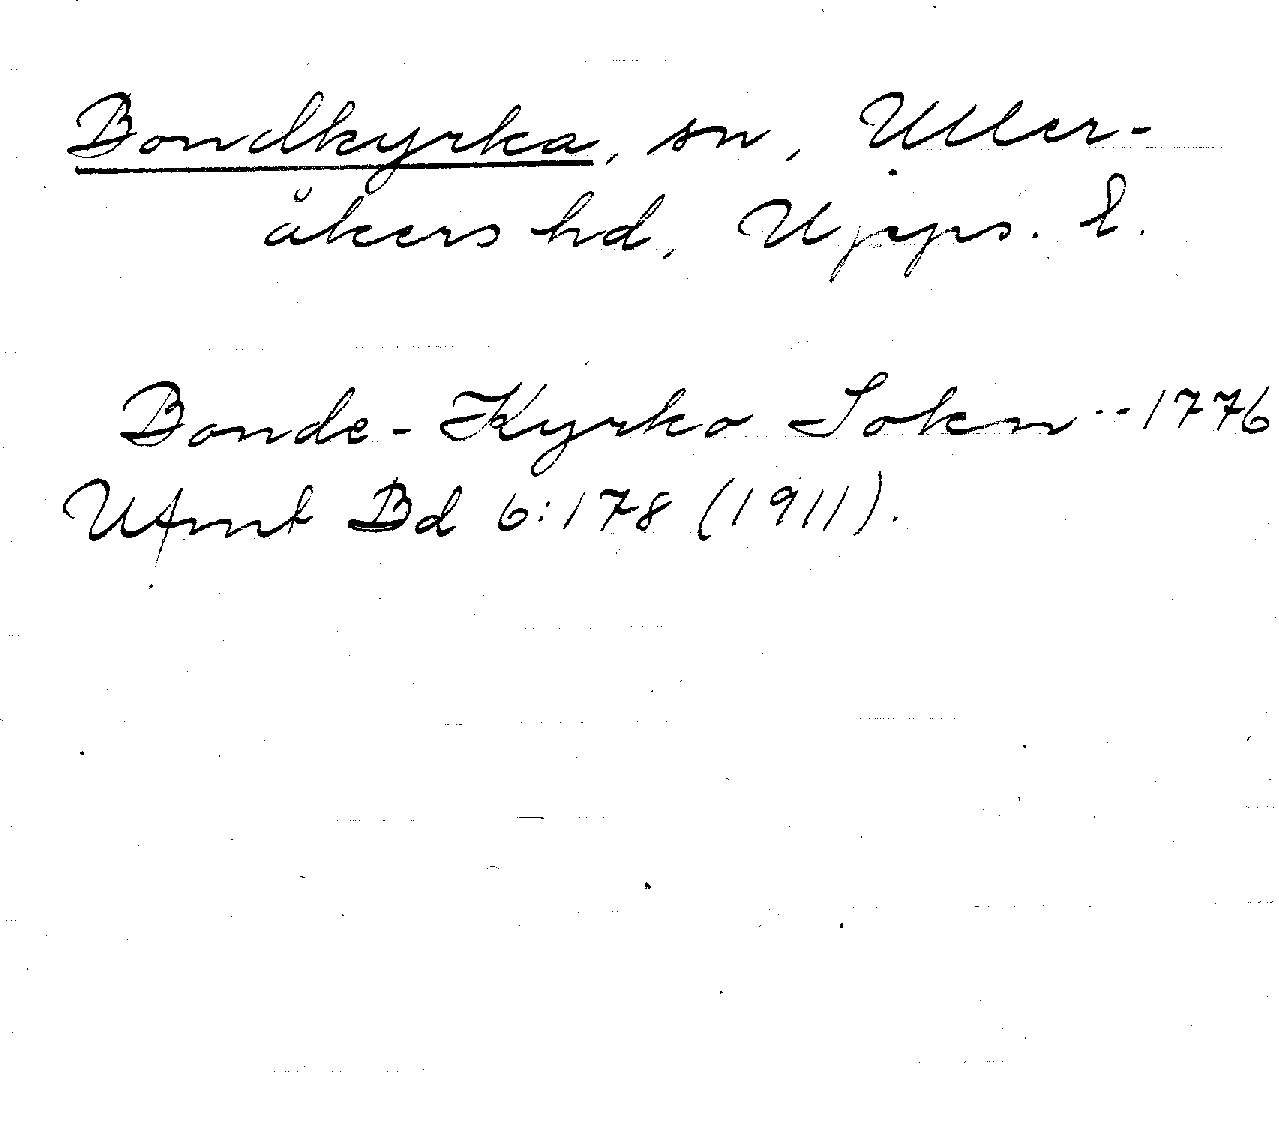 Bondkyrka, sn, Uller-
åkers hd, Upps. l.
Bonde-Kyrko Sokn -- 1776
Ufmt Bd 6:178 (1911).